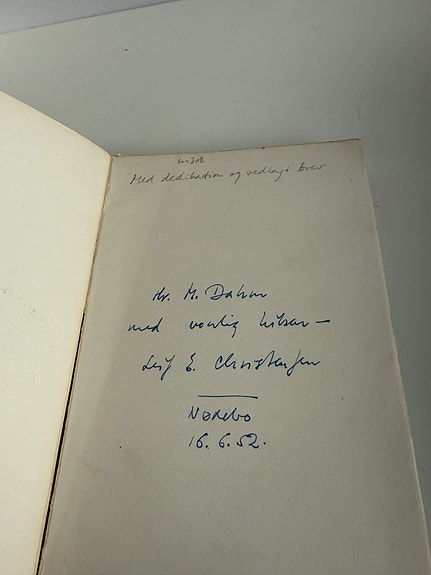 Med dedikation og vedlagt brev
Hr. M. Dahan
med venlig hilsen —
Leif E. Christensen
Nødebo
16.6.52.